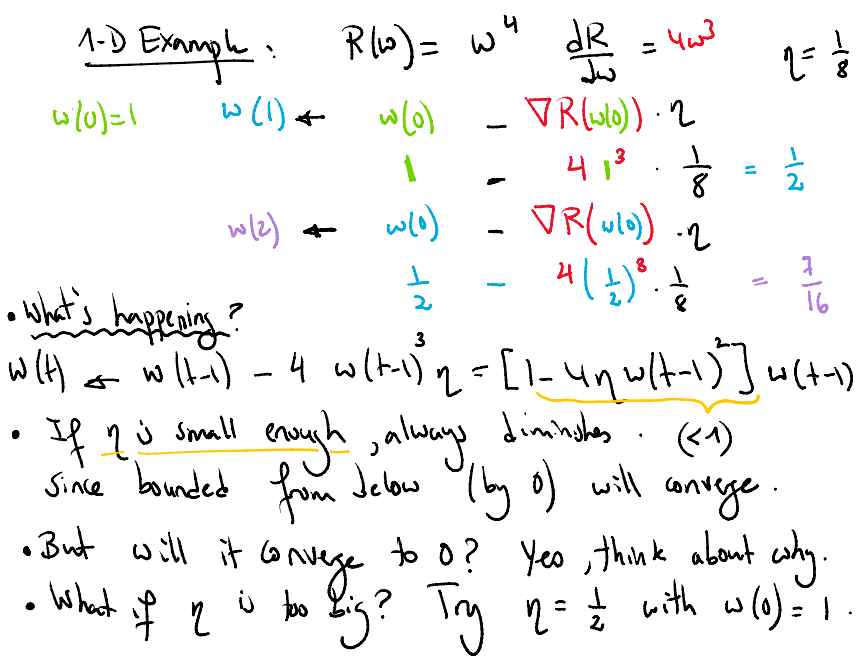 1-D Example: R(w) = w⁴ dR/dw = 4w³ η = 1/8
w(0)=1 w(1) ← w(0) - ∇R(w(0)) · η
1 - 4 1³ · 1/8 = 1/2
w(2) ← w(0) - ∇R(w(0)) · η
1/2 - 4(1/2)⁸ · 1/8 = 7/16
• What's happening?
w(t) ← w(t-1) - 4 w(t-1)³ η = [1 - 4η w(t-1)²] w(t-1)
• If η is small enough, always diminishes. (<1)
since bounded from below (by 0) will converge.
• But will it converge to 0? Yes, think about why.
• What if η is too big? Try η = 1/2 with w(0) = 1.